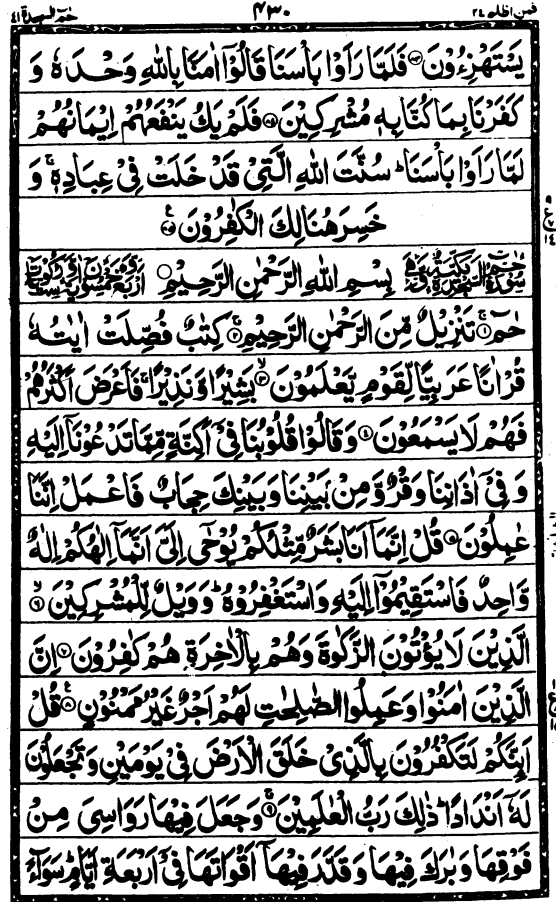 فمن اظلم ٢٤ ٤٣٠ حٰم السجدة ٤١
يَسْتَهْزِءُوْنَ ﴿٨٣﴾ فَلَمَّا رَاَوْا بَاْسَنَا قَالُوْۤا اٰمَنَّا بِاللّٰهِ وَحْدَهٗ وَ
كَفَرْنَا بِمَا كُنَّا بِهٖ مُشْرِكِيْنَ ﴿٨٤﴾ فَلَمْ يَكُ يَنْفَعُهُمْ اِيْمَانُهُمْ
لَمَّا رَاَوْا بَاْسَنَا ؕ سُنَّتَ اللّٰهِ الَّتِيْ قَدْ خَلَتْ فِيْ عِبَادِهٖ ۚ وَ
خَسِرَ هُنَالِكَ الْكٰفِرُوْنَ ﴿٨٥﴾
بِسْمِ اللّٰهِ الرَّحْمٰنِ الرَّحِيْمِ
حٰمٓ ﴿١﴾ تَنْزِيْلٌ مِّنَ الرَّحْمٰنِ الرَّحِيْمِ ﴿٢﴾ كِتٰبٌ فُصِّلَتْ اٰيٰتُهٗ
قُرْاٰنًا عَرَبِيًّا لِّقَوْمٍ يَّعْلَمُوْنَ ﴿٣﴾ بَشِيْرًا وَّنَذِيْرًا ۚ فَاَعْرَضَ اَكْثَرُهُمْ
فَهُمْ لَا يَسْمَعُوْنَ ﴿٤﴾ وَقَالُوْا قُلُوْبُنَا فِيْۤ اَكِنَّةٍ مِّمَّا تَدْعُوْنَاۤ اِلَيْهِ
وَفِيْۤ اٰذَانِنَا وَقْرٌ وَّمِنْۢ بَيْنِنَا وَبَيْنِكَ حِجَابٌ فَاعْمَلْ اِنَّنَا
عٰمِلُوْنَ ﴿٥﴾ قُلْ اِنَّمَاۤ اَنَا بَشَرٌ مِّثْلُكُمْ يُوْحٰۤى اِلَيَّ اَنَّمَاۤ اِلٰهُكُمْ اِلٰهٌ
وَّاحِدٌ فَاسْتَقِيْمُوْۤا اِلَيْهِ وَاسْتَغْفِرُوْهُ ؕ وَوَيْلٌ لِّلْمُشْرِكِيْنَ ﴿٦﴾
الَّذِيْنَ لَا يُؤْتُوْنَ الزَّكٰوةَ وَهُمْ بِالْاٰخِرَةِ هُمْ كٰفِرُوْنَ ﴿٧﴾ اِنَّ
الَّذِيْنَ اٰمَنُوْا وَعَمِلُوا الصّٰلِحٰتِ لَهُمْ اَجْرٌ غَيْرُ مَمْنُوْنٍ ﴿٨﴾ قُلْ
اَئِنَّكُمْ لَتَكْفُرُوْنَ بِالَّذِيْ خَلَقَ الْاَرْضَ فِيْ يَوْمَيْنِ وَتَجْعَلُوْنَ
لَهٗۤ اَنْدَادًا ؕ ذٰلِكَ رَبُّ الْعٰلَمِيْنَ ﴿٩﴾ وَجَعَلَ فِيْهَا رَوَاسِيَ مِنْ
فَوْقِهَا وَبٰرَكَ فِيْهَا وَقَدَّرَ فِيْهَاۤ اَقْوَاتَهَا فِيْۤ اَرْبَعَةِ اَيَّامٍ ؕ سَوَآءً